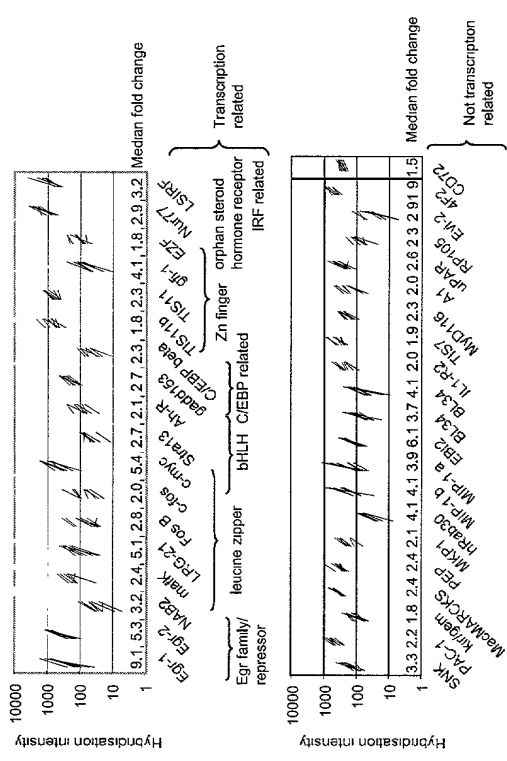 Hybridisation intensity
10000
1000
100
10
1
9.1, 5.3, 3.2, 2.4, 5.1, 2.8, 2.0, 5.4, 2.7, 2.1, 2.7, 2.3, 1.8, 2.3, 4.1, 1.8, 2.9, 3.2 Median fold change
Egr-1 Egr-2 NAB2 mafK LRG-21 Fos B c-fos c-myc Stra13 Ah-R gadd153 C/EBP beta TIS11b TIS11 gfi-1 EZF Nur77 LSIRF
Egr family/
repressor
leucine zipper
bHLH
C/EBP related
Zn finger
orphan steroid
hormone receptor
IRF related
Transcription
related
Hybridisation intensity
10000
1000
100
10
1
3.3 2.2 1.8 2.4 2.4 2.1 4.1 4.1 3.9 6.1 3.7 4.1 2.0 1.9 2.3 2.0 2.6 2.3 2.91 9 1.5 Median fold change
SNK PAC-1 kir/gem MacMARCKS PEP MKP1 hRab30 MIP-1 b MIP-1 a EBI2 BL34 BL34 IL1-R2 TIS7 MyD116 A1 uPAR RP105 Evi-2 4F2 CD72
Not transcription
related